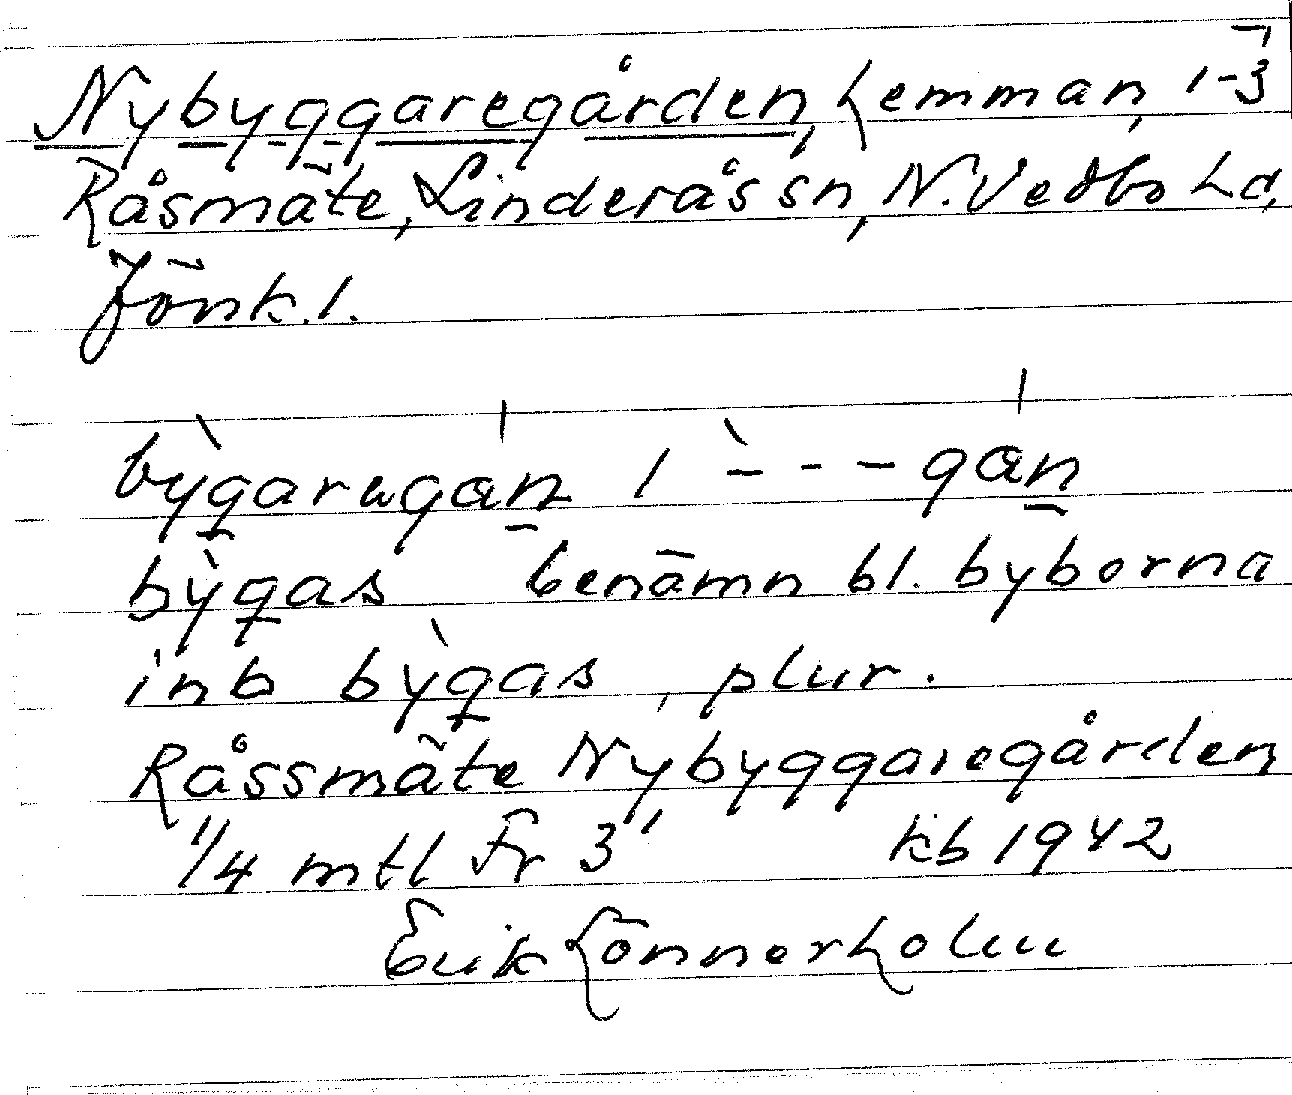 Nybyggaregården, hemman, 1-3
Råsmäte, Linderås sn, N. Vedbo hd,
Jönk. l.
bỳgaragån l ̀- - - gån
bỳgas benämn bl. byborna
inb bỳgas, plur.
Råssmäte Nybyggaregården
1/4 mtl Fr 3' kb 1942
Erik Lönnerholm